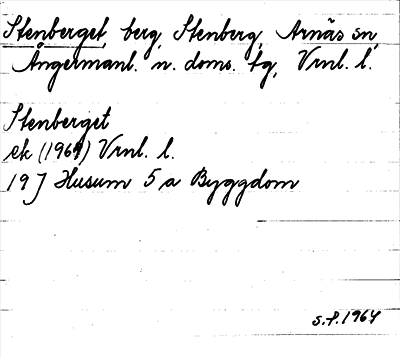 Stenberget, berg, Stenberg, Arnäs sn,
Ångermanl. n. doms. tg, Vrnl. l.
Stenberget
ek (1964) Vrnl. l.
19 J Husum 5 a Byggdom
S.F. 1964